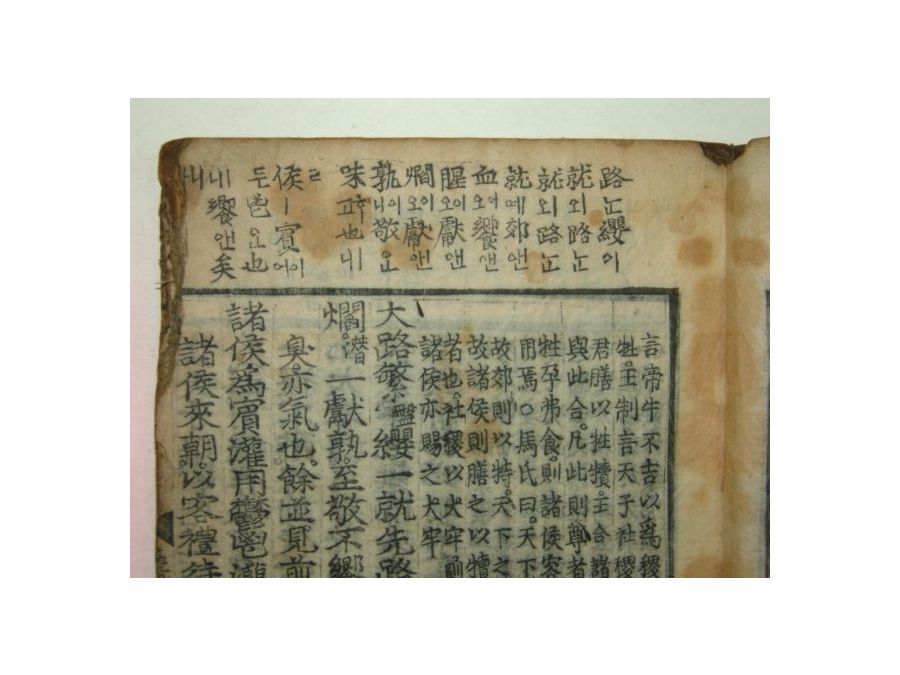 路는纓이
就외路는
就외路는
就떼郊앤
血오여饗앤
腥오이獻앤
爓오이獻앤
孰니이敬오
味고也니
侯ㅣ賓에이
든鬯오也
내饗앤矣
言帝牛不吉以爲稷
牲王制言天子社稷
君膳以牲犢主合諸
與此合凡此則尊者
牲孕弗食則諸侯容
用焉○馬氏曰天下
故郊則以特天下之
故諸侯則膳之以犢
者也社稷以犬牢則
諸侯亦賜之犬牢
大路繁盤纓一就先路
爓潛一獻孰至敬不饗
臭亦氣也餘並見前
諸侯爲賓灌用鬱鬯灌
諸侯來朝以客禮待